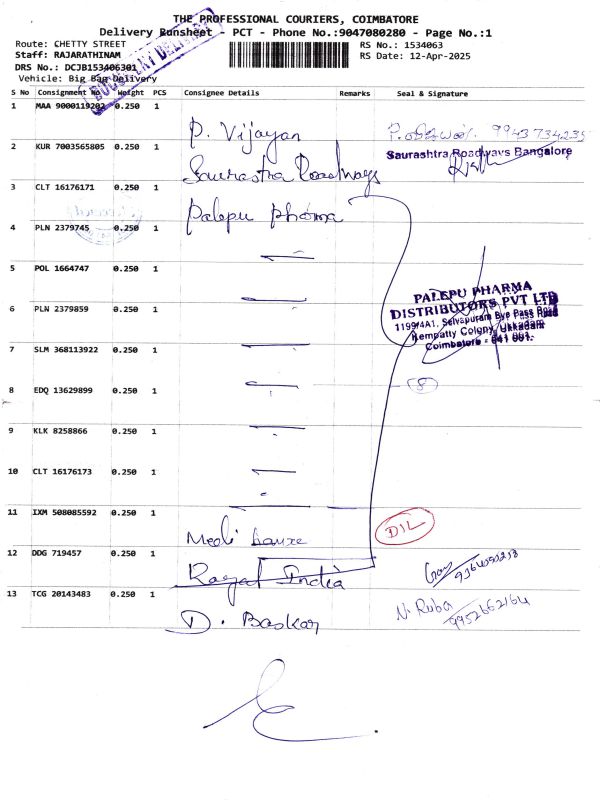 THE PROFESSIONAL COURIERS, COIMBATORE
Delivery Runsheet - PCT - Phone No.:9047080280 - Page No.:1
Route: CHETTY STREET
RS No.: 1534063
Staff: RAJARATHINAM
RS Date: 12-Apr-2025
DRS No.: DCJB153406301
Vehicle: Big Bag Delivery
S No Consignment No Weight PCS Consignee Details Remarks Seal & Signature
1 MAA 9000119202 0.250 1
P. Vijayan 9943734235
2 KUR 7003565805 0.250 1
Saurashtra Roadways Bangalore
Saurastra Roadways
3 CLT 16176171 0.250 1
Palepu pharma
4 PLN 2379745 0.250 1
5 POL 1664747 0.250 1
PALEPU PHARMA
DISTRIBUTORS PVT LTD
6 PLN 2379859 0.250 1
1199/4A1, Selvapuram Bye Pass Road
Kempatty Colony, Ukkadam
Coimbatore - 641 001.
7 SLM 368113922 0.250 1
8 EDQ 13629899 0.250 1
8
9 KLK 8258866 0.250 1
10 CLT 16176173 0.250 1
11 IXM 508085592 0.250 1
D/L
12 DDG 719457 0.250 1
India
13 TCG 20143483 0.250 1
N. Ruba
9952662164
D. Baskar